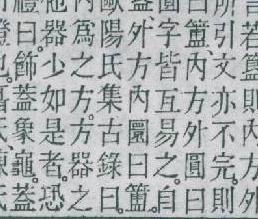 若簋則內方外
所引文亦不完則
曰簠內方外圓曰
字皆互易之自
外方內圜曰簠
歐陽氏集古錄曰
內爲之方方器之
他器少如是者恐
禮曰飾蓋象龜蓋